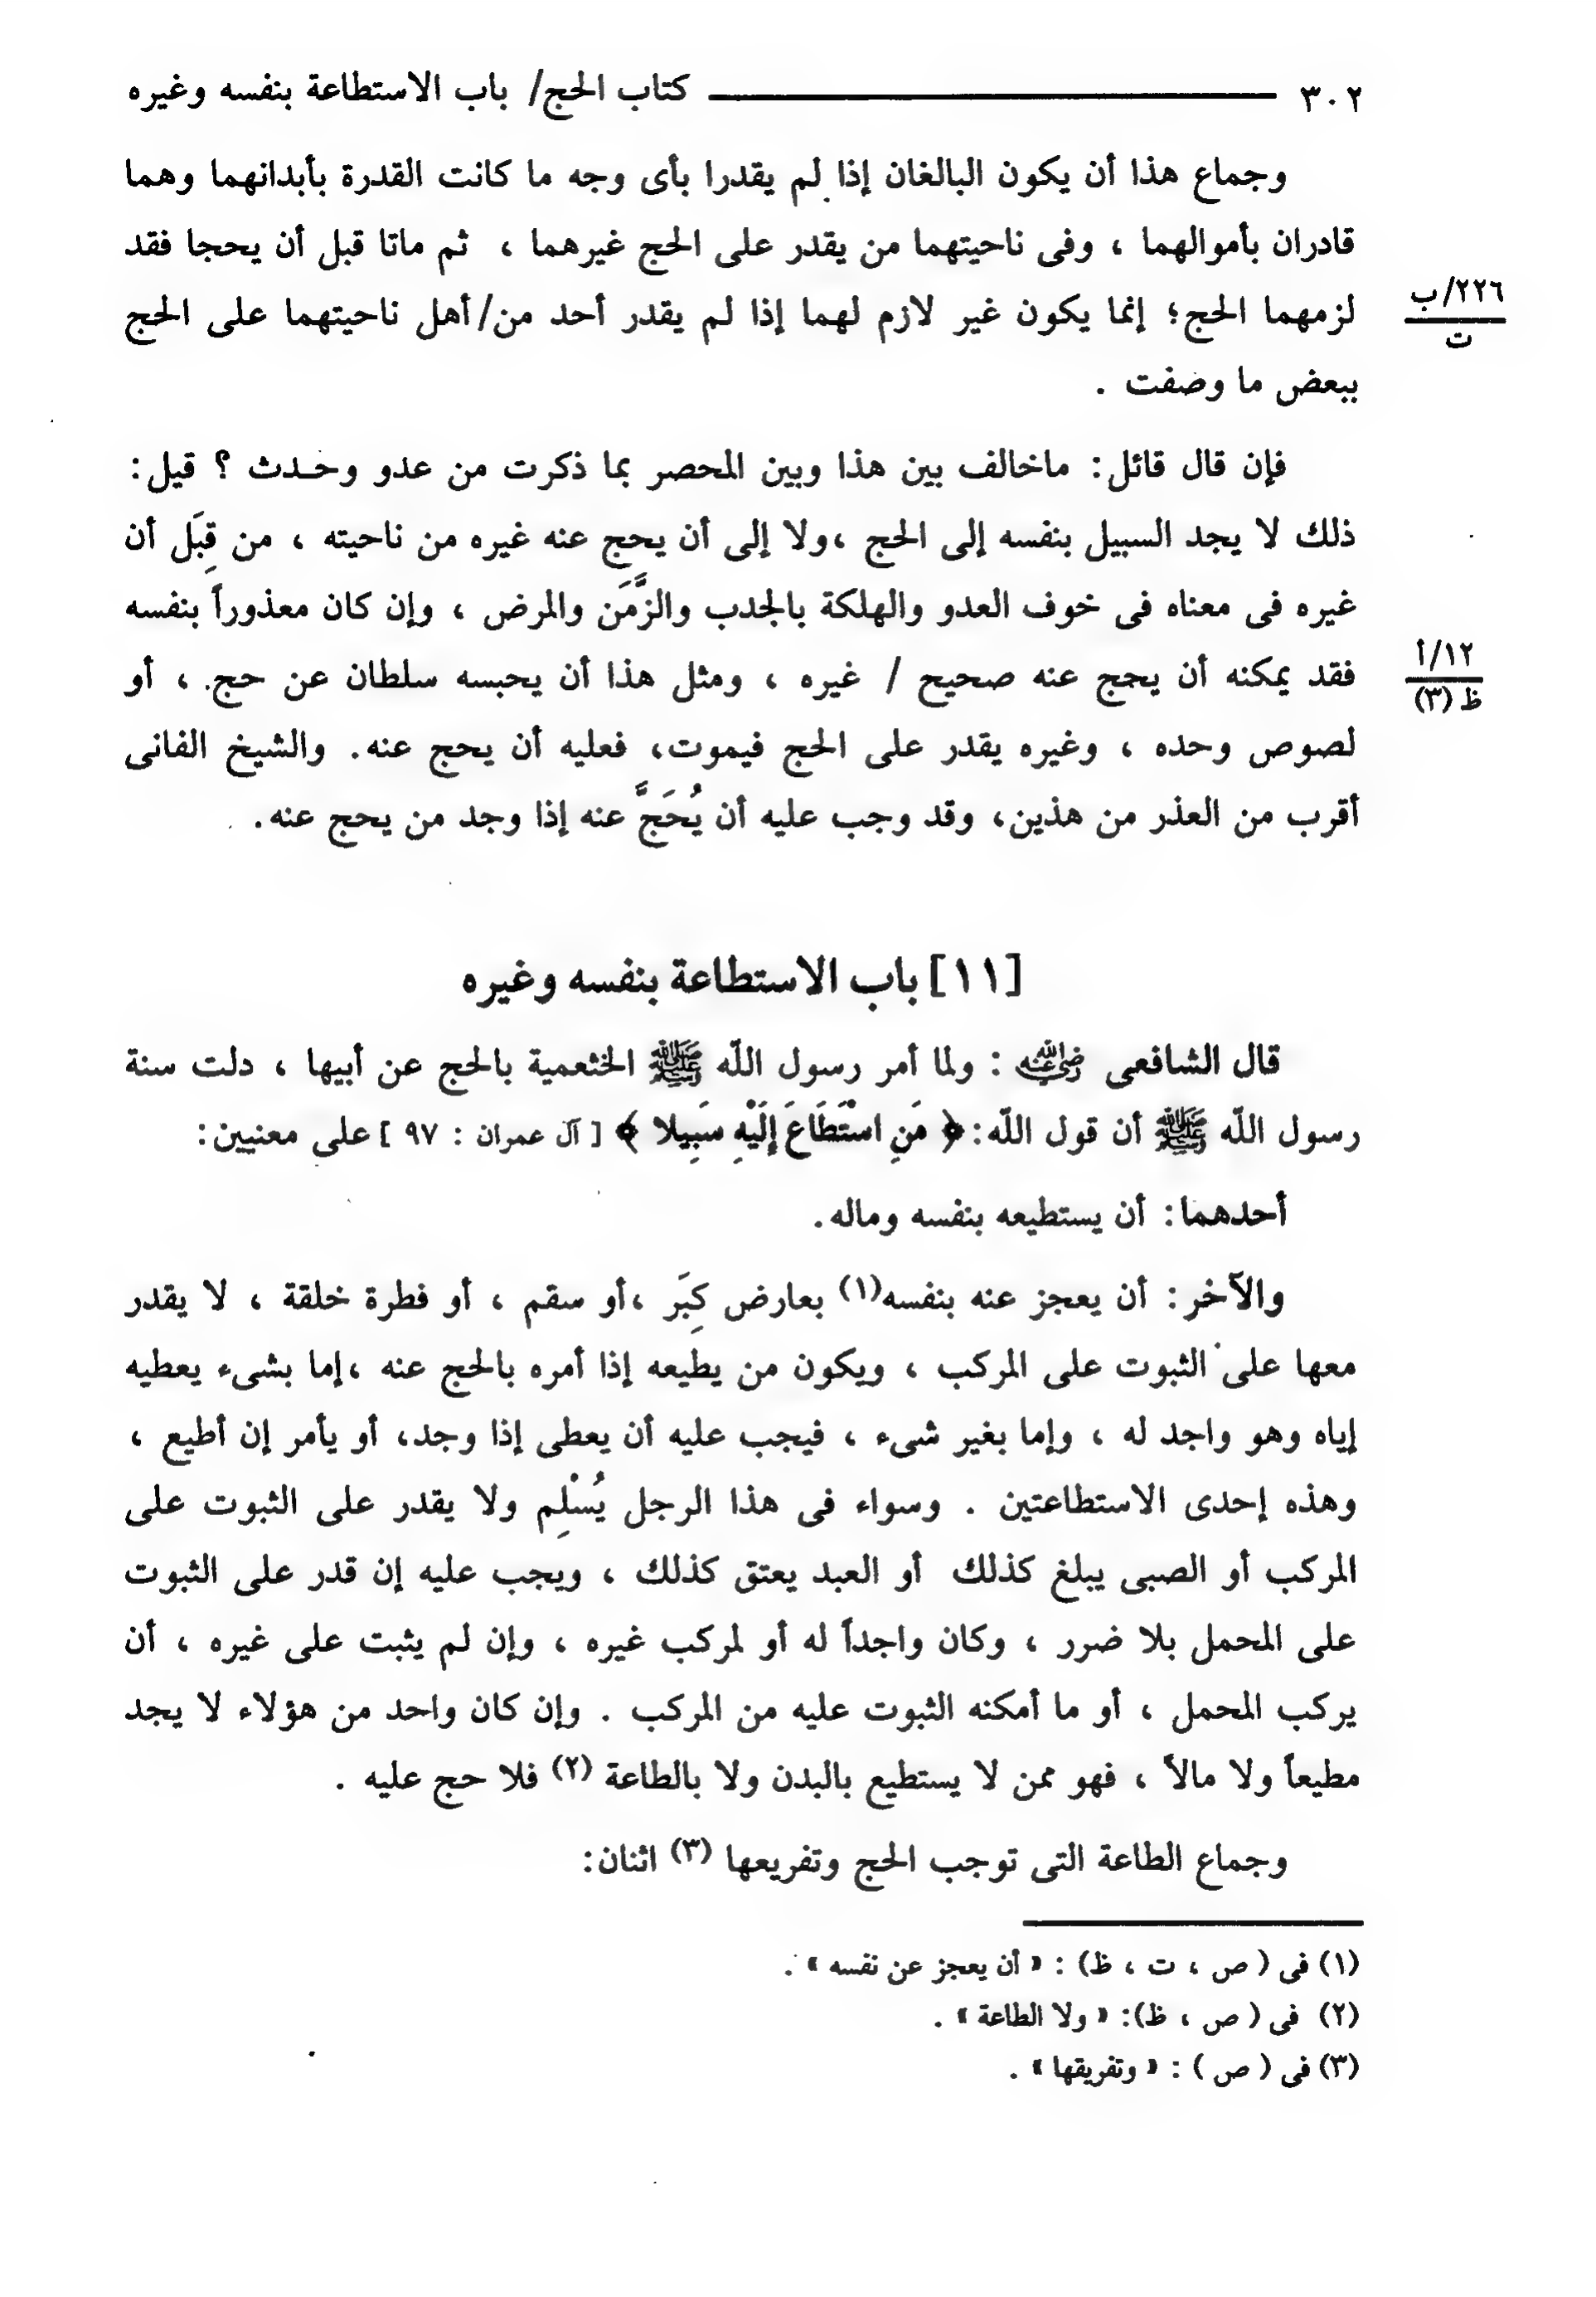 ٣٠٢ كتاب الحج/ باب الاستطاعة بنفسه وغيره
وجماع هذا أن يكون البالغان إذا لم يقدرا بأى وجه ما كانت القدرة بأبدانهما وهما
قادران بأموالهما ، وفى ناحيتهما من يقدر على الحج غيرهما ، ثم ماتا قبل أن يحجا فقد
لزمهما الحج؛ إنما يكون غير لازم لهما إذا لم يقدر أحد من/ أهل ناحيتهما على الحج
٢٢٦/ب
ت
ببعض ما وصفت .
فإن قال قائل: ماخالف بين هذا وبين المحصر بما ذكرت من عدو وحـدث ؟ قيل:
ذلك لا يجد السبيل بنفسه إلى الحج ،ولا إلى أن يحج عنه غيره من ناحيته ، من قِبَل أن
غيره فى معناه فى خوف العدو والهلكة بالجدب والزَّمَن والمرض ، وإن كان معذوراً بنفسه
فقد يمكنه أن يحج عنه صحيح / غيره ، ومثل هذا أن يحبسه سلطان عن حج ، أو
١٢/أ
ظ (٣)
لصوص وحده ، وغيره يقدر على الحج فيموت، فعليه أن يحج عنه. والشيخ الفانى
أقرب من العذر من هذين، وقد وجب عليه أن يُحَجَّ عنه إذا وجد من يحج عنه.
[١١] باب الاستطاعة بنفسه وغيره
قال الشافعى رضي الله عنه : ولما أمر رسول اللّه ﷺ الخثعمية بالحج عن أبيها ، دلت سنة
رسول اللّه ﷺ أن قول اللّه: ﴿ مَنِ اسْتَطَاعَ إِلَيْهِ سَبِيلا ﴾ [ آل عمران : ٩٧ ] على معنيين:
أحدهما: أن يستطيعه بنفسه وماله.
والآخر: أن يعجز عنه بنفسه(١) بعارض كِبَر ،أو سقم ، أو فطرة خلقة ، لا يقدر
معها على الثبوت على المركب ، ويكون من يطيعه إذا أمره بالحج عنه ،إما بشىء يعطيه
إياه وهو واجد له ، وإما بغير شىء ، فيجب عليه أن يعطى إذا وجد، أو يأمر إن أطيع ،
وهذه إحدى الاستطاعتين . وسواء فى هذا الرجل يُسْلِم ولا يقدر على الثبوت على
المركب أو الصبى يبلغ كذلك أو العبد يعتق كذلك ، ويجب عليه إن قدر على الثبوت
على المحمل بلا ضرر ، وكان واجداً له أو لمركب غيره ، وإن لم يثبت على غيره ، أن
يركب المحمل ، أو ما أمكنه الثبوت عليه من المركب . وإن كان واحد من هؤلاء لا يجد
مطيعاً ولا مالاً ، فهو ممن لا يستطيع بالبدن ولا بالطاعة (٢) فلا حج عليه .
وجماع الطاعة التى توجب الحج وتفريعها (٣) اثنان:
(١) فى ( ص ، ت ، ظ) : « أن يعجز عن نفسه » .
(٢) فى ( ص ، ظ): « ولا الطاعة » .
(٣) فى ( ص ) : « وتفريقها » .